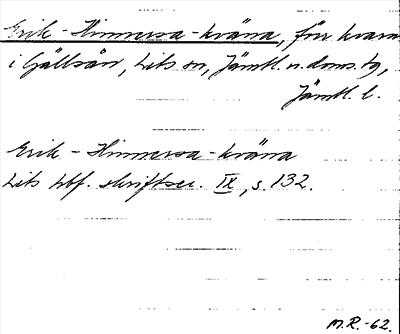 Erik-Hinnersa-kväna, förr kvarn
i Gällsån, Lits sn, Jämtl. n. doms. tg,
Jämtl. l.
Erik-Hinnersa-kväna
Lits hbf. skriftser. IX, s. 132.
M.R.-62.